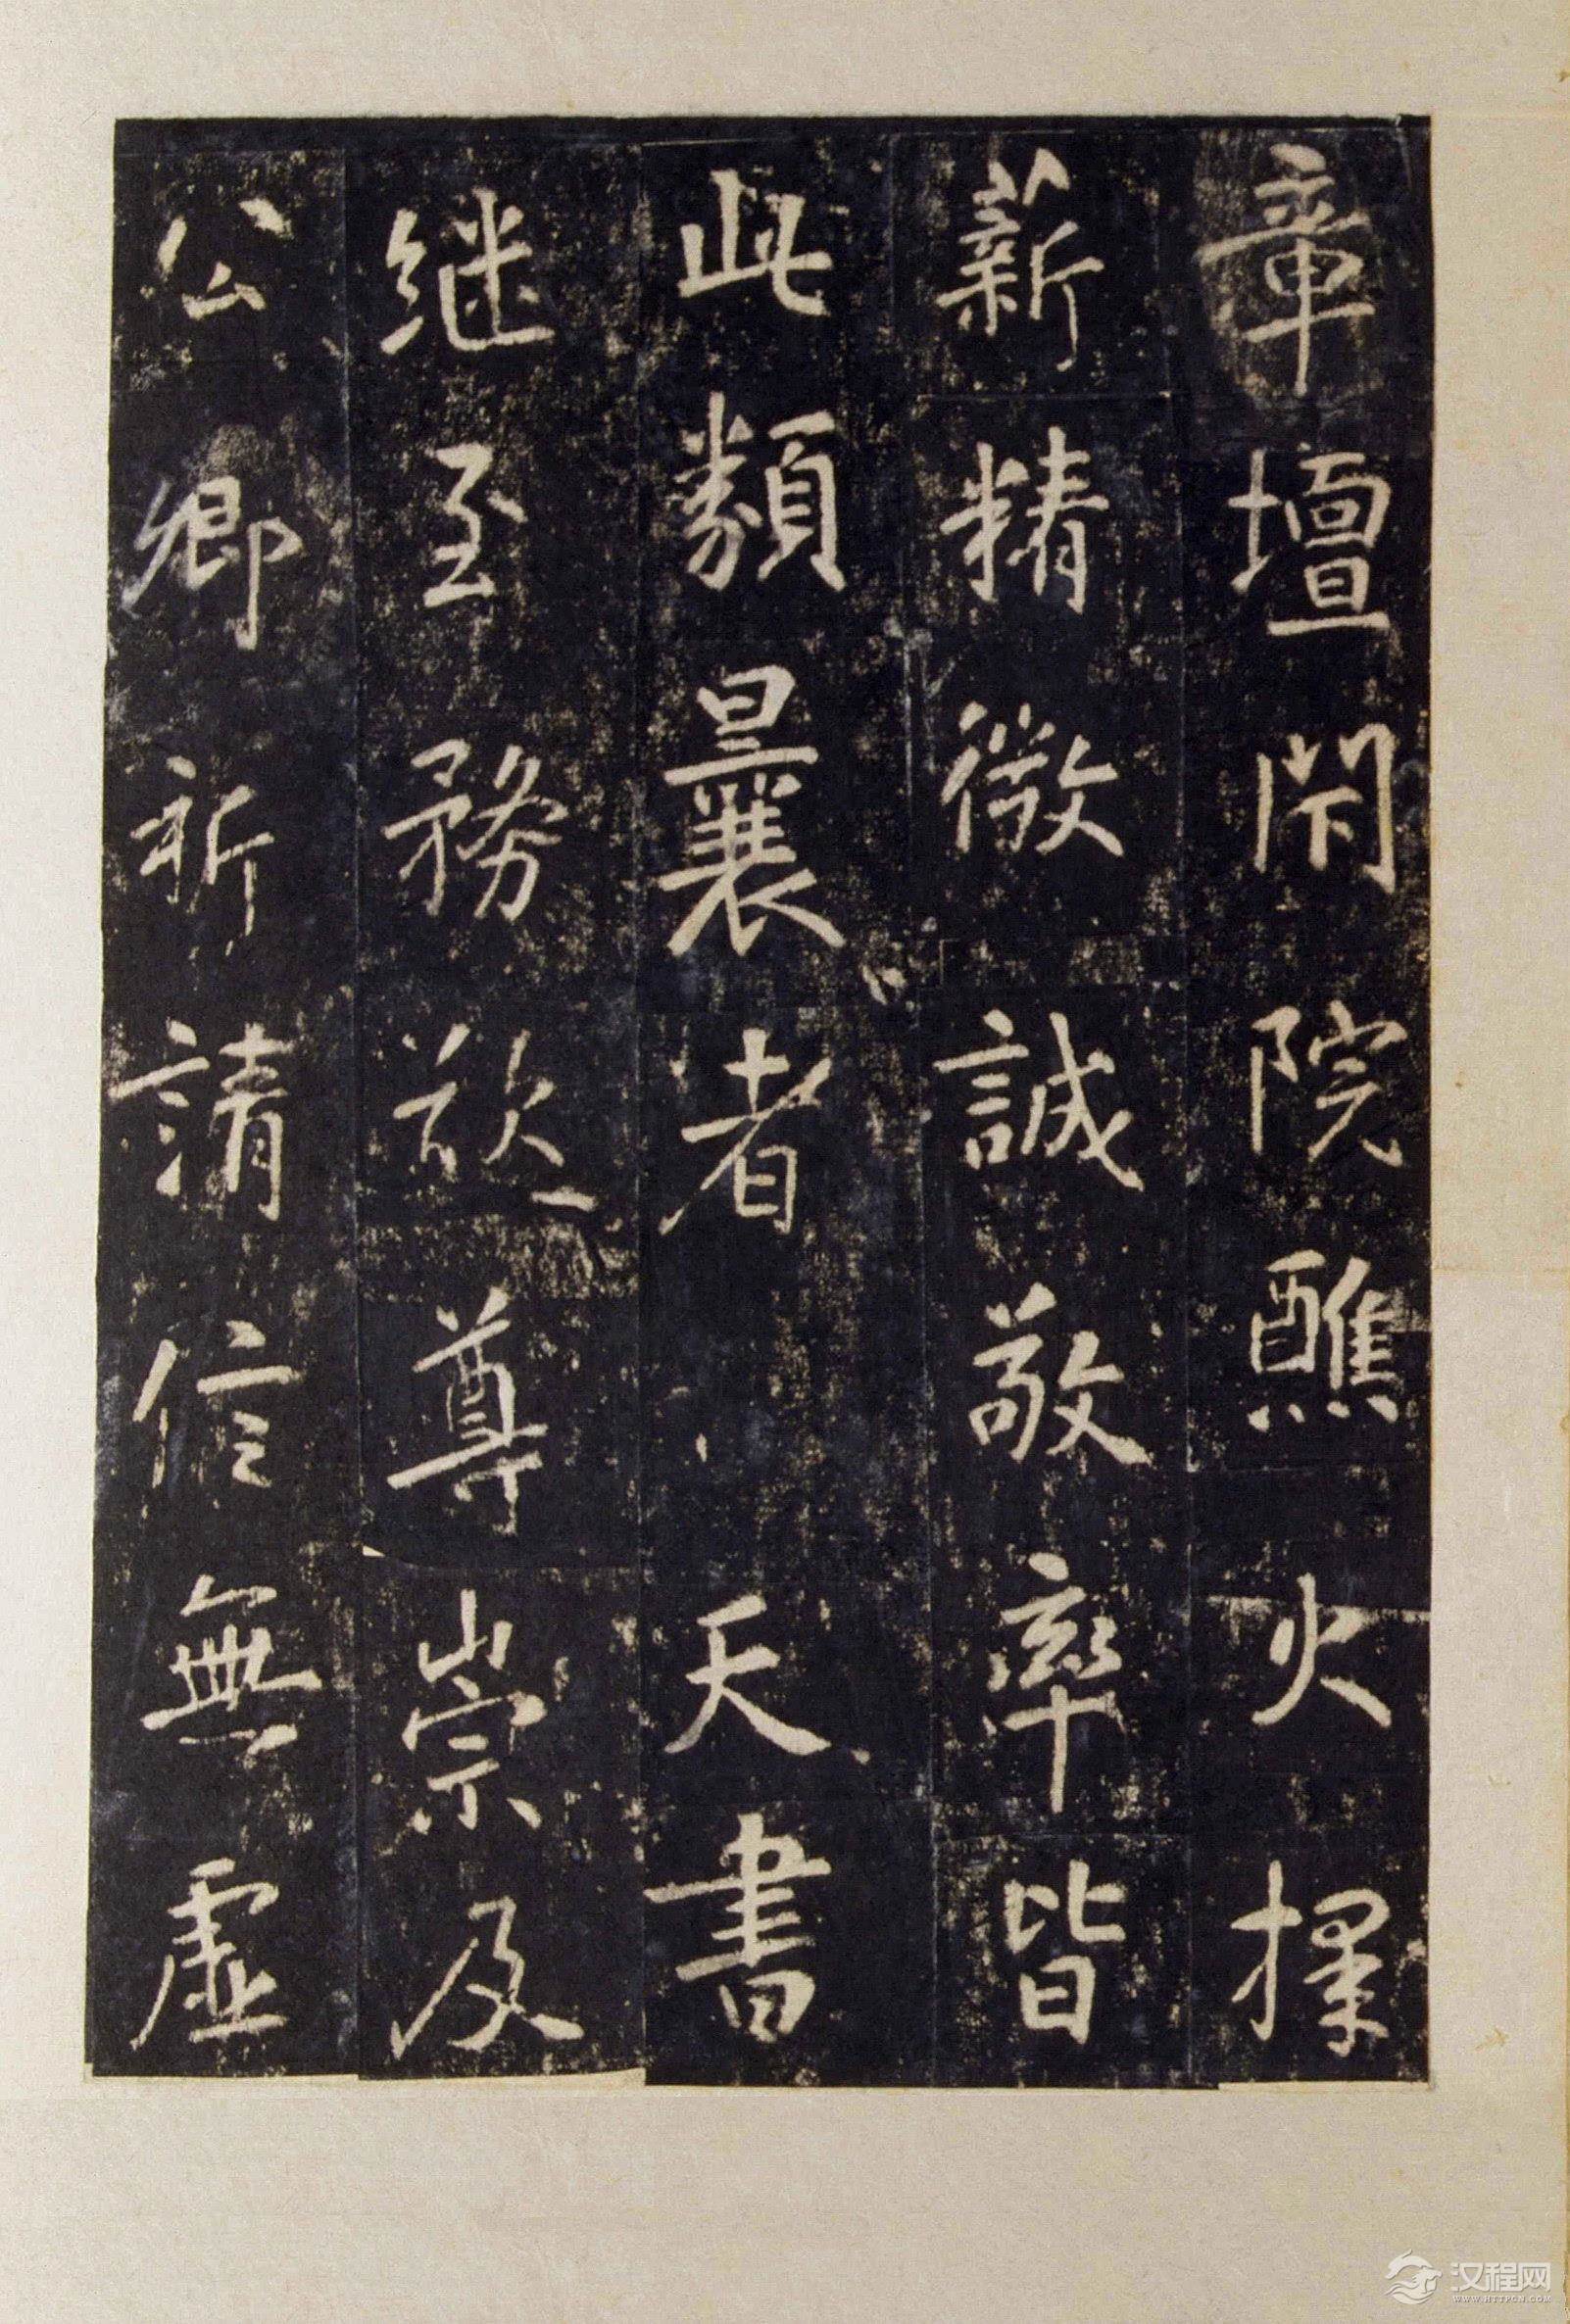 章壇閇院醮火揲
薪精徵誠敬率皆
此類曩者天書
继至務欲尊崇及
公卿祈請信無虛
汉程网
WWW.HTTPCN.COM